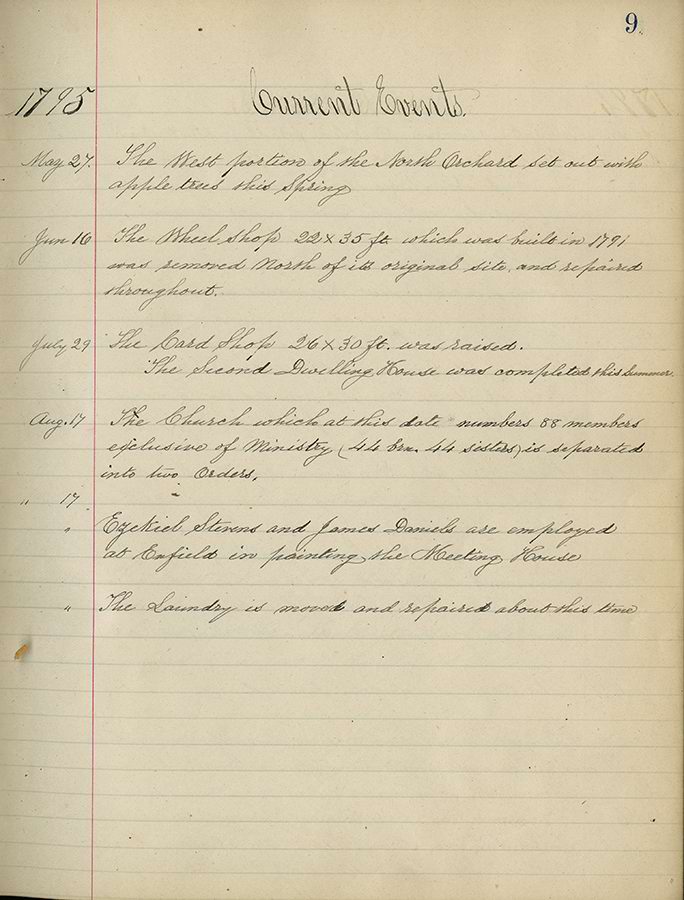 9
1795 Current Events.
May 27. The West portion of the North Orchard set out with
apple trees this Spring
Jun 16 The Wheel shop 22 x 35 ft. which was built in 1791
was removed North of its original site, and repaired
throughout.
July 29 The Card Shop 26 x 30 ft. was raised.
The Second Dwelling House was completed this Summer.
Aug. 17 The Church which at this date numbers 88 members
exclusive of Ministry (44 brn. 44 sisters) is separated
into two Orders.
" 17
" Ezekiel Stevens and James Daniels are employed
at Enfield in painting the Meeting House
" The Laundry is moved and repaired about this time